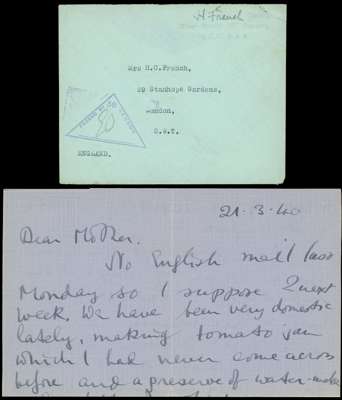 H French
Mrs H.C.French,
29 Stanhope Gardens,
London,
S.W.7.
ENGLAND.
PASSED BY
21-3-40
Dear Mother.
No English mail last
Monday so I suppose 2 next
week. We have been very domestic
lately, making tomato jam
which I had never come across
before and a preserve of water-melon